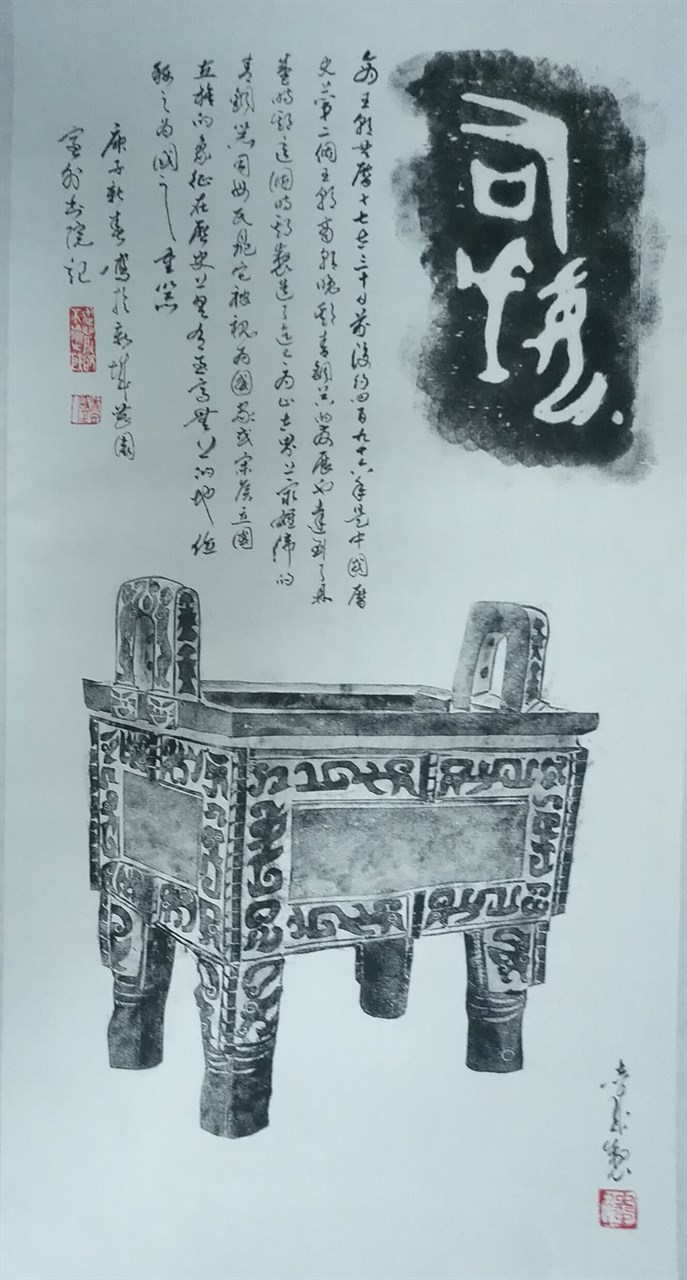 司母戊
王朝共曆十七世三十前後約四百九十六年是中國曆
史上第二個王朝商朝晚期青銅器的發展也達到了鼎
盛時期這個時期製造了迄今为止世界上最雄偉的
青銅器司母戊鼎它被視为國家或宗族立國
立族的象征在歷史上具有至高無上的地位
稱之为國之重器
庚子新春於新城園
書院記
製